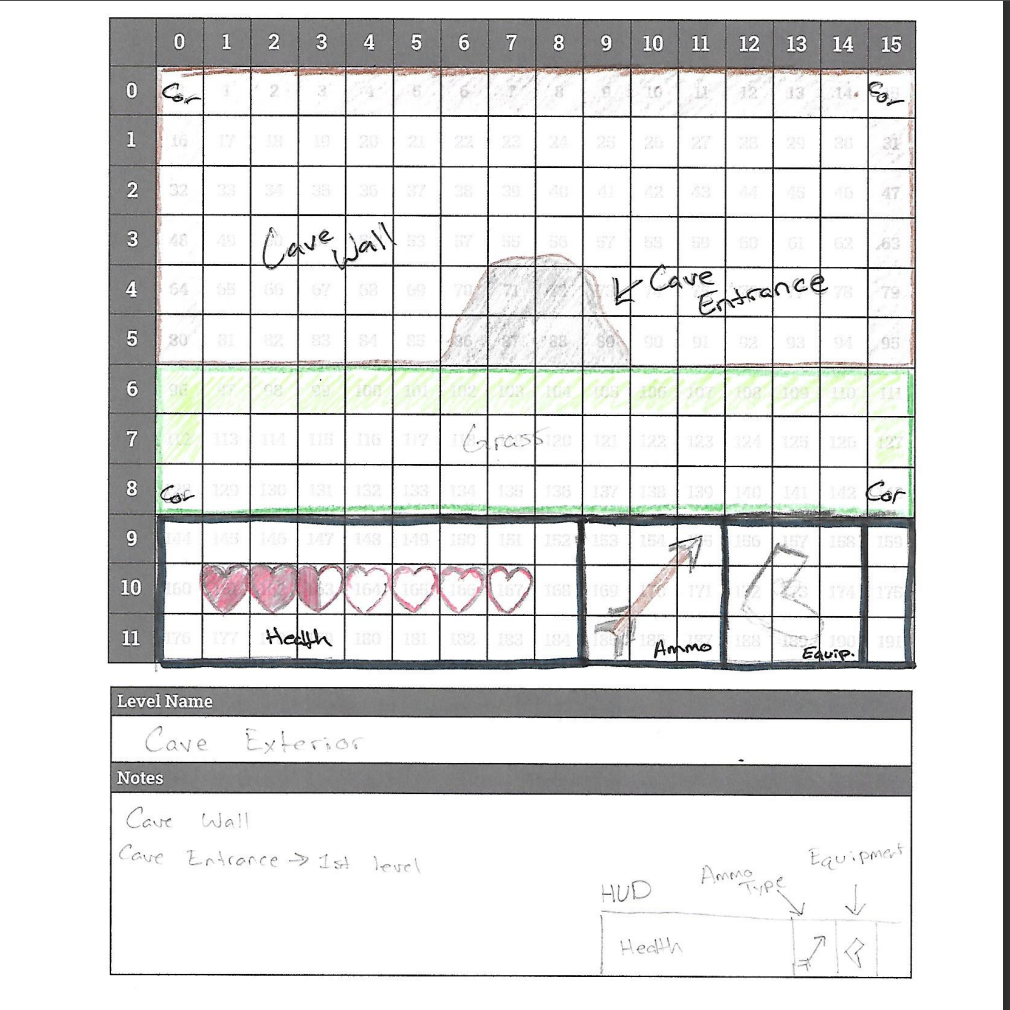 0 1 2 3 4 5 6 7 8 9 10 11 12 13 14 15
0 Cor 1 2 3 4 5 6 7 8 9 10 11 12 13 14 Cor
1 16 17 18 19 20 21 22 23 24 25 26 27 28 29 30 31
2 32 33 34 35 36 37 38 39 40 41 42 43 44 45 46 47
3 48 49 Cave Wall 53 57 55 56 57 58 59 60 61 62 63
4 64 65 66 67 68 69 70 71 72 Cave Entrance 78 79
5 80 81 82 83 84 85 86 87 88 89 90 91 92 93 94 95
6 96 97 98 99 100 101 102 103 104 105 106 107 108 109 110 111
7 112 113 114 115 116 117 Grass 120 121 122 123 124 125 126 127
8 Cor 129 130 131 132 133 134 135 136 137 138 139 140 141 142 Cor
9 144 145 146 147 148 149 150 151 152 153 154 156 157 158 159
10 160 163 164 165 166 167 168 169 171 174 175
11 176 177 Health 180 181 182 183 184 Ammo 187 188 189 190 Equip. 191
Level Name
Cave Exterior
Notes
Cave Wall
Cave Entrance → 1st level
Equipment
Ammo Type
HUD
Health